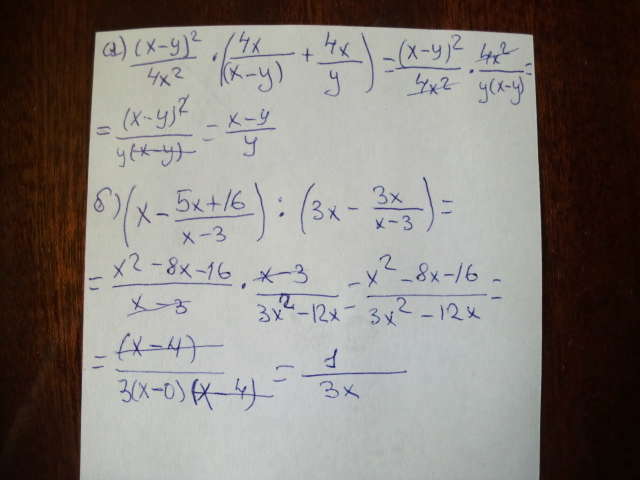 а) (x-y)²/4x² · (4x/(x-y) + 4x/y) = (x-y)²/4x² · 4x²/y(x-y) =
= (x-y)²/y(x-y) = x-y/y
б) (x - 5x+16/x-3) : (3x - 3x/x-3) =
= x²-8x-16/x-3 · x-3/3x²-12x = x²-8x-16/3x²-12x =
= (x-4)/3(x-0)(x-4) = 1/3x